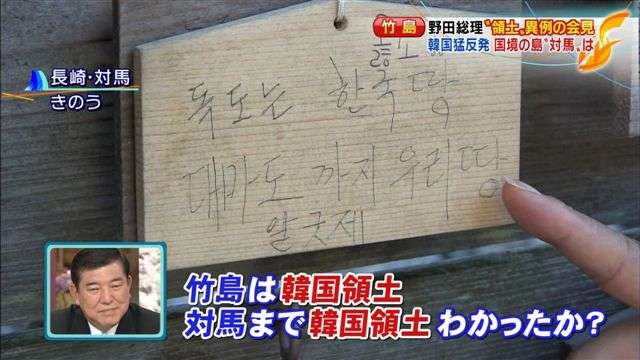 竹島
野田総理“領土„異例の会見
韓国猛反発 国境の島“対馬„は
長崎・対馬
きのう
독도는 한국땅
대마도 까지 우리땅
알굿제
竹島は韓国領土
対馬まで韓国領土 わかったか?